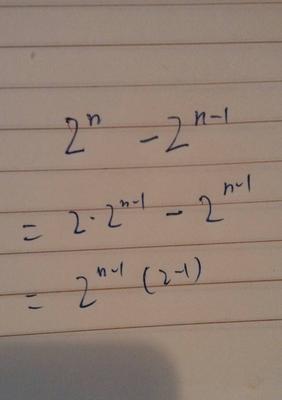 2ⁿ - 2ⁿ⁻¹
= 2 · 2ⁿ⁻¹ - 2ⁿ⁻¹
= 2ⁿ⁻¹ (2-1)